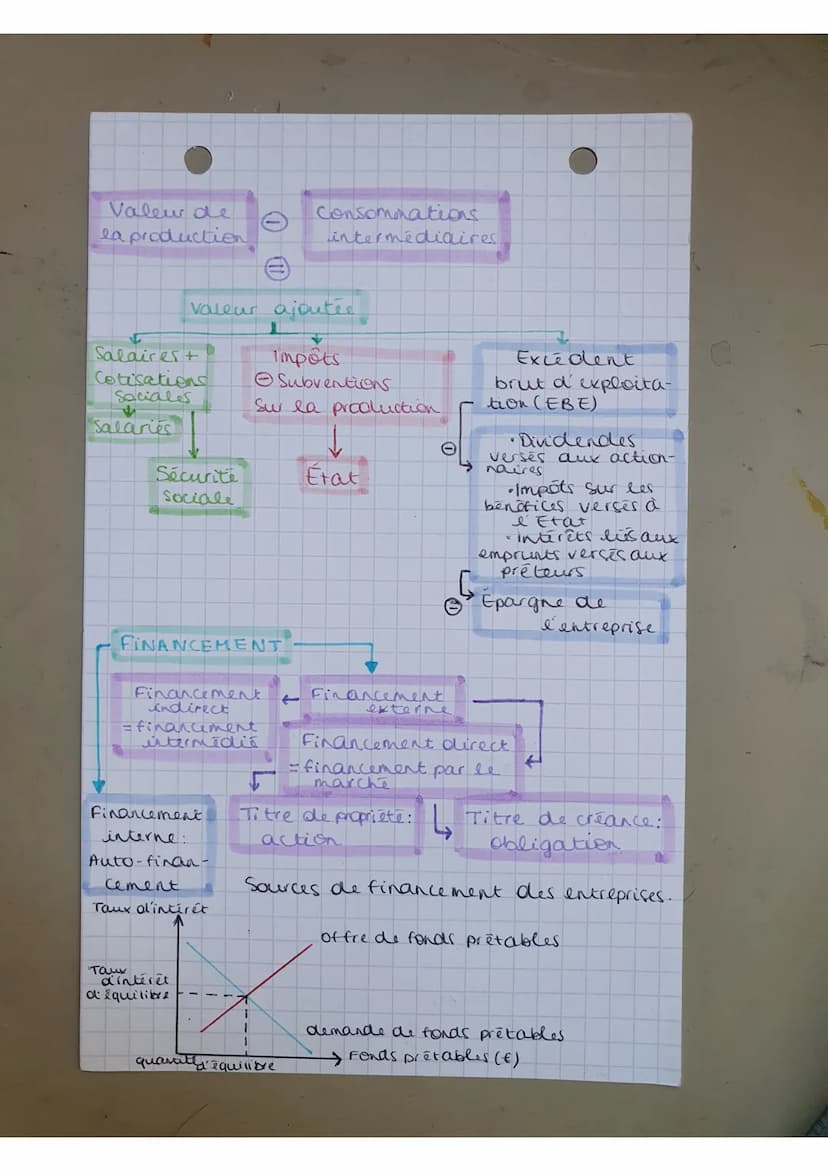 Valeur de
la production
⊖
Consommations
intermédiaires
⊜
Valeur ajoutée
Salaires +
Cotisations
sociales
Salariés
Sécurité
sociale
Impôts
⊖ Subventions
sur la production
État
Excédent
brut d'exploita-
tion (EBE)
⊖
• Dividendes
versés aux action-
naires
• Impôts sur les
bénéfices versés à
l'État
• Intérêts liés aux
emprunts versés aux
prêteurs
⊜
Épargne de
l'entreprise
FINANCEMENT
Financement
indirect
= financement
intermédié
Financement
externe
Financement direct
= financement par le
marché
Financement
interne:
Auto-finan-
cement
Titre de propriété:
action
Titre de créance:
obligation
Sources de financement des entreprises.
Taux d'intérêt
offre de fonds prêtables
Taux
d'intérêt
d'équilibre
demande de fonds prêtables
Fonds prêtables (€)
d'équilibre